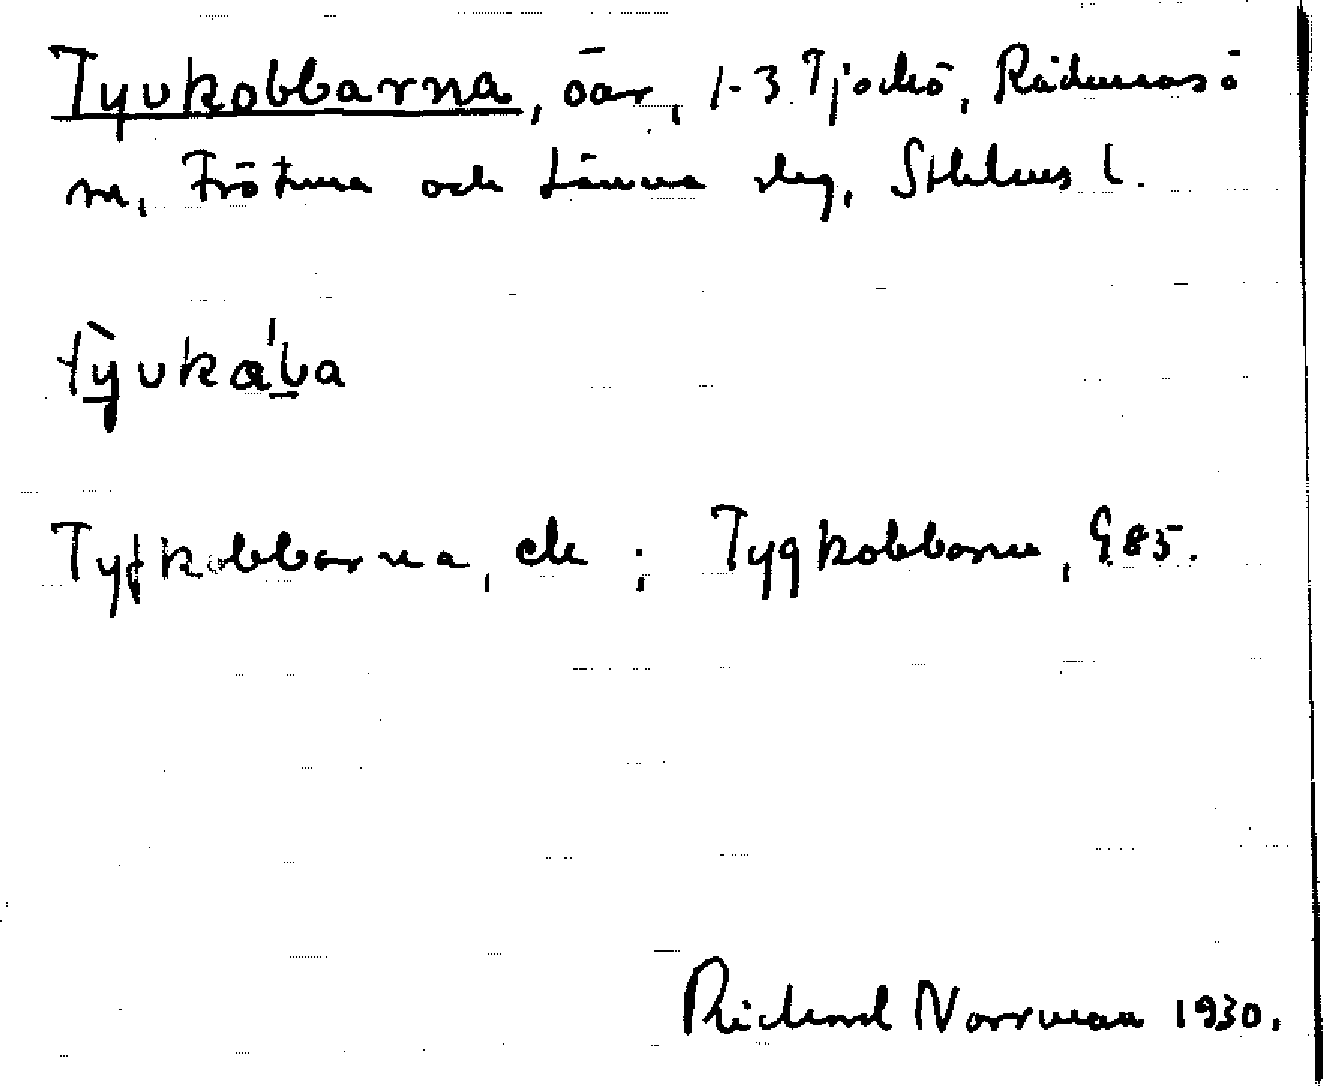 Tyvkobbarna, öar, 1-3 Tjockö, Rådmansö
sn, Frötuna och Länna slg, Sthlms l.
Tyfkobbarna, ek ; Tygkobbarne, G 85.
Richard Norrman 1930.